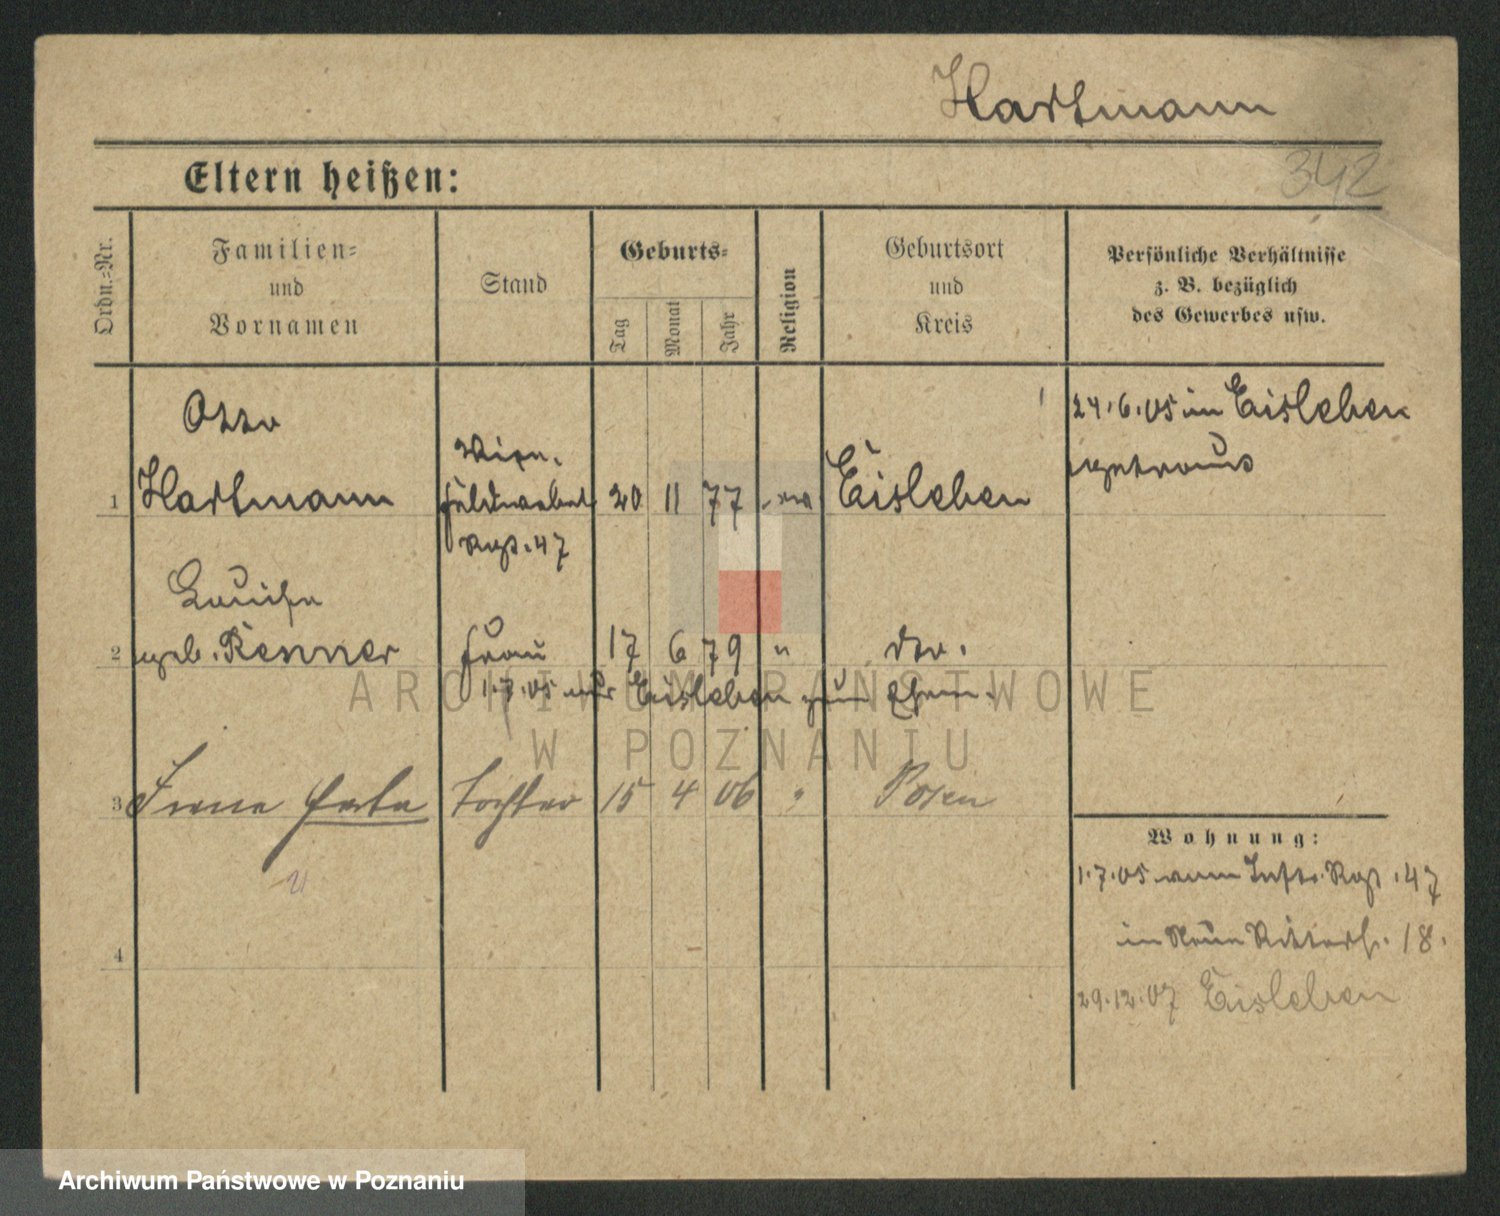 Hartmann
342
Eltern heißen:
Ordn.-Nr.
Familien-
und
Vornamen
Stand
Geburts-
Tag
Monat
Jahr
Religion
Geburtsort
und
Kreis
Persönliche Verhältnisse
z. B. bezüglich
des Gewerbes usw.
Otto
1 Hartmann
Vize-
feldwebel 20 11 77 ev Eisleben
Rgt. 47
24.6.05 in Eisleben
getraut
Louise
2 geb. Renner Frau 17 6 79 " do.
1.7.05 aus Eisleben zum Ehem.
3 Irene Herta Tochter 15 4 06 " Posen
4
Wohnung:
1.7.05 vom Inftr. Rgt. 47
in Neue Ritterst. 18.
29.12.07 Eisleben
ARCHIWUM PAŃSTWOWE
W POZNANIU
Archiwum Państwowe w Poznaniu